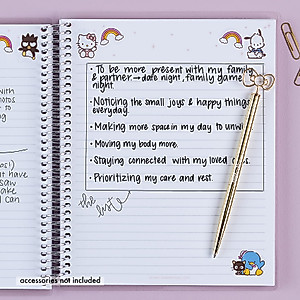 with
hotos
to
• To be more present with my family
& partner → date night, family game
night.
• Noticing the small joys & happy things
everyday.
• Making more space in my day to
• Moving my body more.
• Staying connected with my loved
• Prioritizing my care and rest.
the liste
s!)
t have
saw
ake
I can
accessories not included